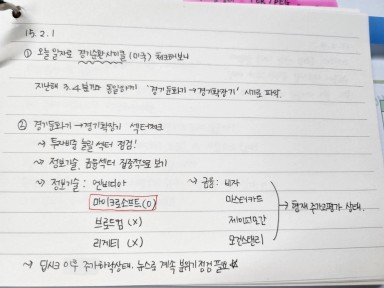 15.2.1
① 오늘 일자로 경기순환사이클(미국) 체크해보니
지난해 3.4분기와 동일하게 '경기둔화기→경기확장기' 시기로 파악.
② 경기둔화기→경기확장기 섹터체크
↝ 투자비중 늘릴 섹터 점검!
↝ 정보기술, 금융섹터 집중적으로 보기
↝ 정보기술: 엔비디아 ↝ 금융: 비자
마이크로소프트(O) 마스터카드
브로드컴 (X) 제이피모간 → 현재 주가 고평가 상태.
리게티 (X) 모건스탠리
↝ 딥시크 이후 주가하락상태. 뉴스로 계속 분위기 점검 필요